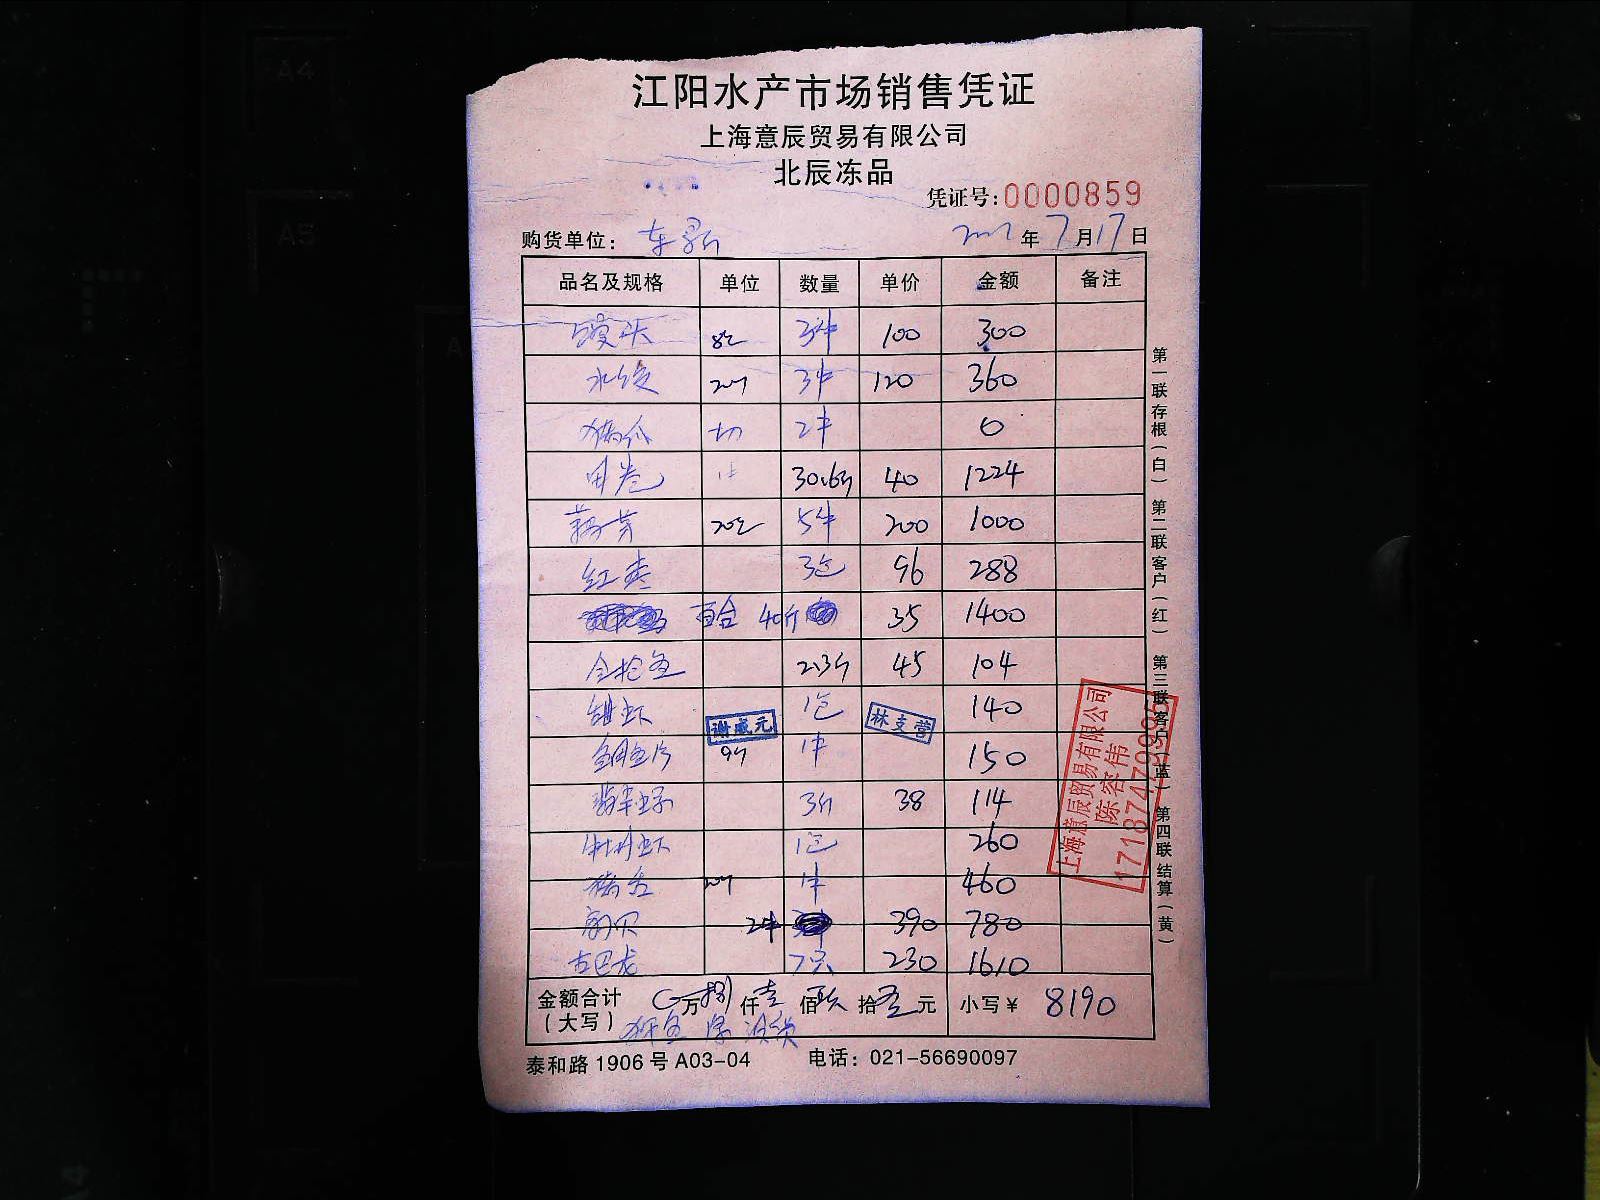 江阳水产市场销售凭证
上海意辰贸易有限公司
北辰冻品
凭证号:0000859
购货单位: 年 7 月 17 日
品名及规格 单位 数量 单价 金额 备注
馒头 3件 100 300
水饺 3件 120 360
切 2件 0
30.6斤 40 1224
5件 200 1000
红枣 3包 96 288
百合 40斤 35 1400
金枪鱼 2.3斤 45 104
甜虾 1包 140
谢威元 林支营
鲷鱼片 1件 150
3斤 38 114
牡丹虾 1包 260
1件 460
2件 390 780
古巴龙 7只 230 1610
金额合计 万捌仟壹佰玖拾 元 小写¥ 8190
(大写)
泰和路1906号A03-04 电话: 021-56690097
第一联存根(白) 第二联客户(红) 第三联客户(蓝) 第四联结算(黄)
上海意辰贸易有限公司
陈容伟